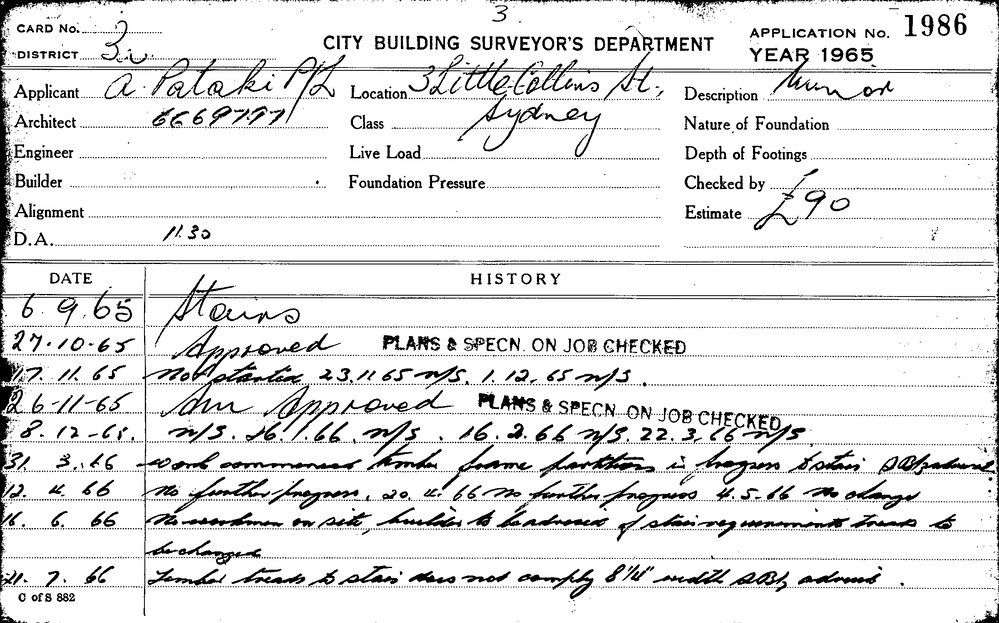 3
CARD No. 2
DISTRICT 3
CITY BUILDING SURVEYOR'S DEPARTMENT
APPLICATION No. 1986
YEAR 1965
Applicant A. Pataki P/L
Location 3 Little Collins St.,
Description Minor
Architect 6669797
Class Sydney
Nature of Foundation
Engineer
Live Load
Depth of Footings
Builder
Foundation Pressure
Checked by
Alignment
Estimate £90
D.A. 11.30
DATE HISTORY
6.9.65 Stairs
27.10.65 Approved PLANS & SPECN. ON JOB CHECKED
17.11.65 Not started 23.11.65 n/s. 1.12.65 n/s.
26-11-65 Am Approved PLANS & SPECN. ON JOB CHECKED
8.12-65. n/s. 26.1.66 n/s. 16.2.66 n/s. 22.3.66 n/s.
31.3.66 work commenced timber frame partitions in progress to stair
12.4.66 No further progress, 20.4.66 no further progress 4.5.66 no change
16.6.66 No workmen on site, builder to be advised of stair requirements treads to
be changed
21.7.66 Timber treads to stair does not comply 8¼" width
C of S 882